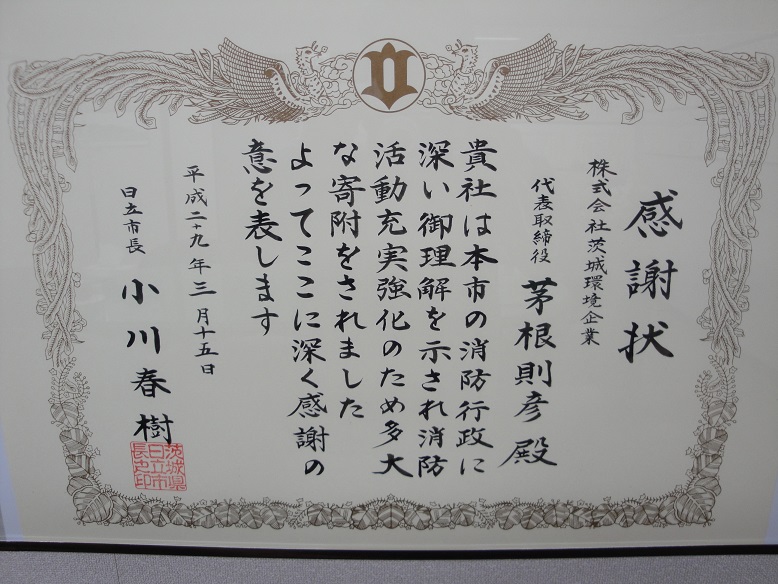 感謝状
株式会社茨城環境企業
代表取締役 茅根則彦 殿
貴社は本市の消防行政に
深い御理解を示され消防
活動充実強化のため多大
な寄附をされました
よってここに深く感謝の
意を表します
平成二十九年三月十五日
日立市長 小川春樹
茨城県
日立市
長之印